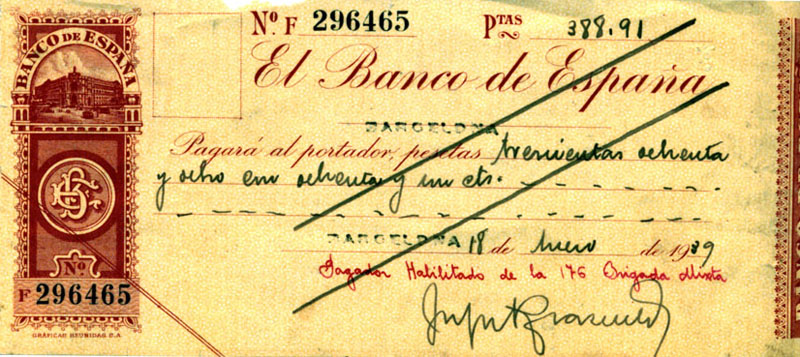 Nº. F 296465 Ptas 388.91
BANCO DE ESPAÑA
El Banco de España
BARCELONA
Pagará al portador, pesetas trescientas ochenta
y ocho con ochenta y un cts.
BARCELONA 18 de Enero de 1939
Pagador Habilitado de la 176 Brigada Mixta
Nº
F 296465
GRÁFICAS REUNIDAS S.A.